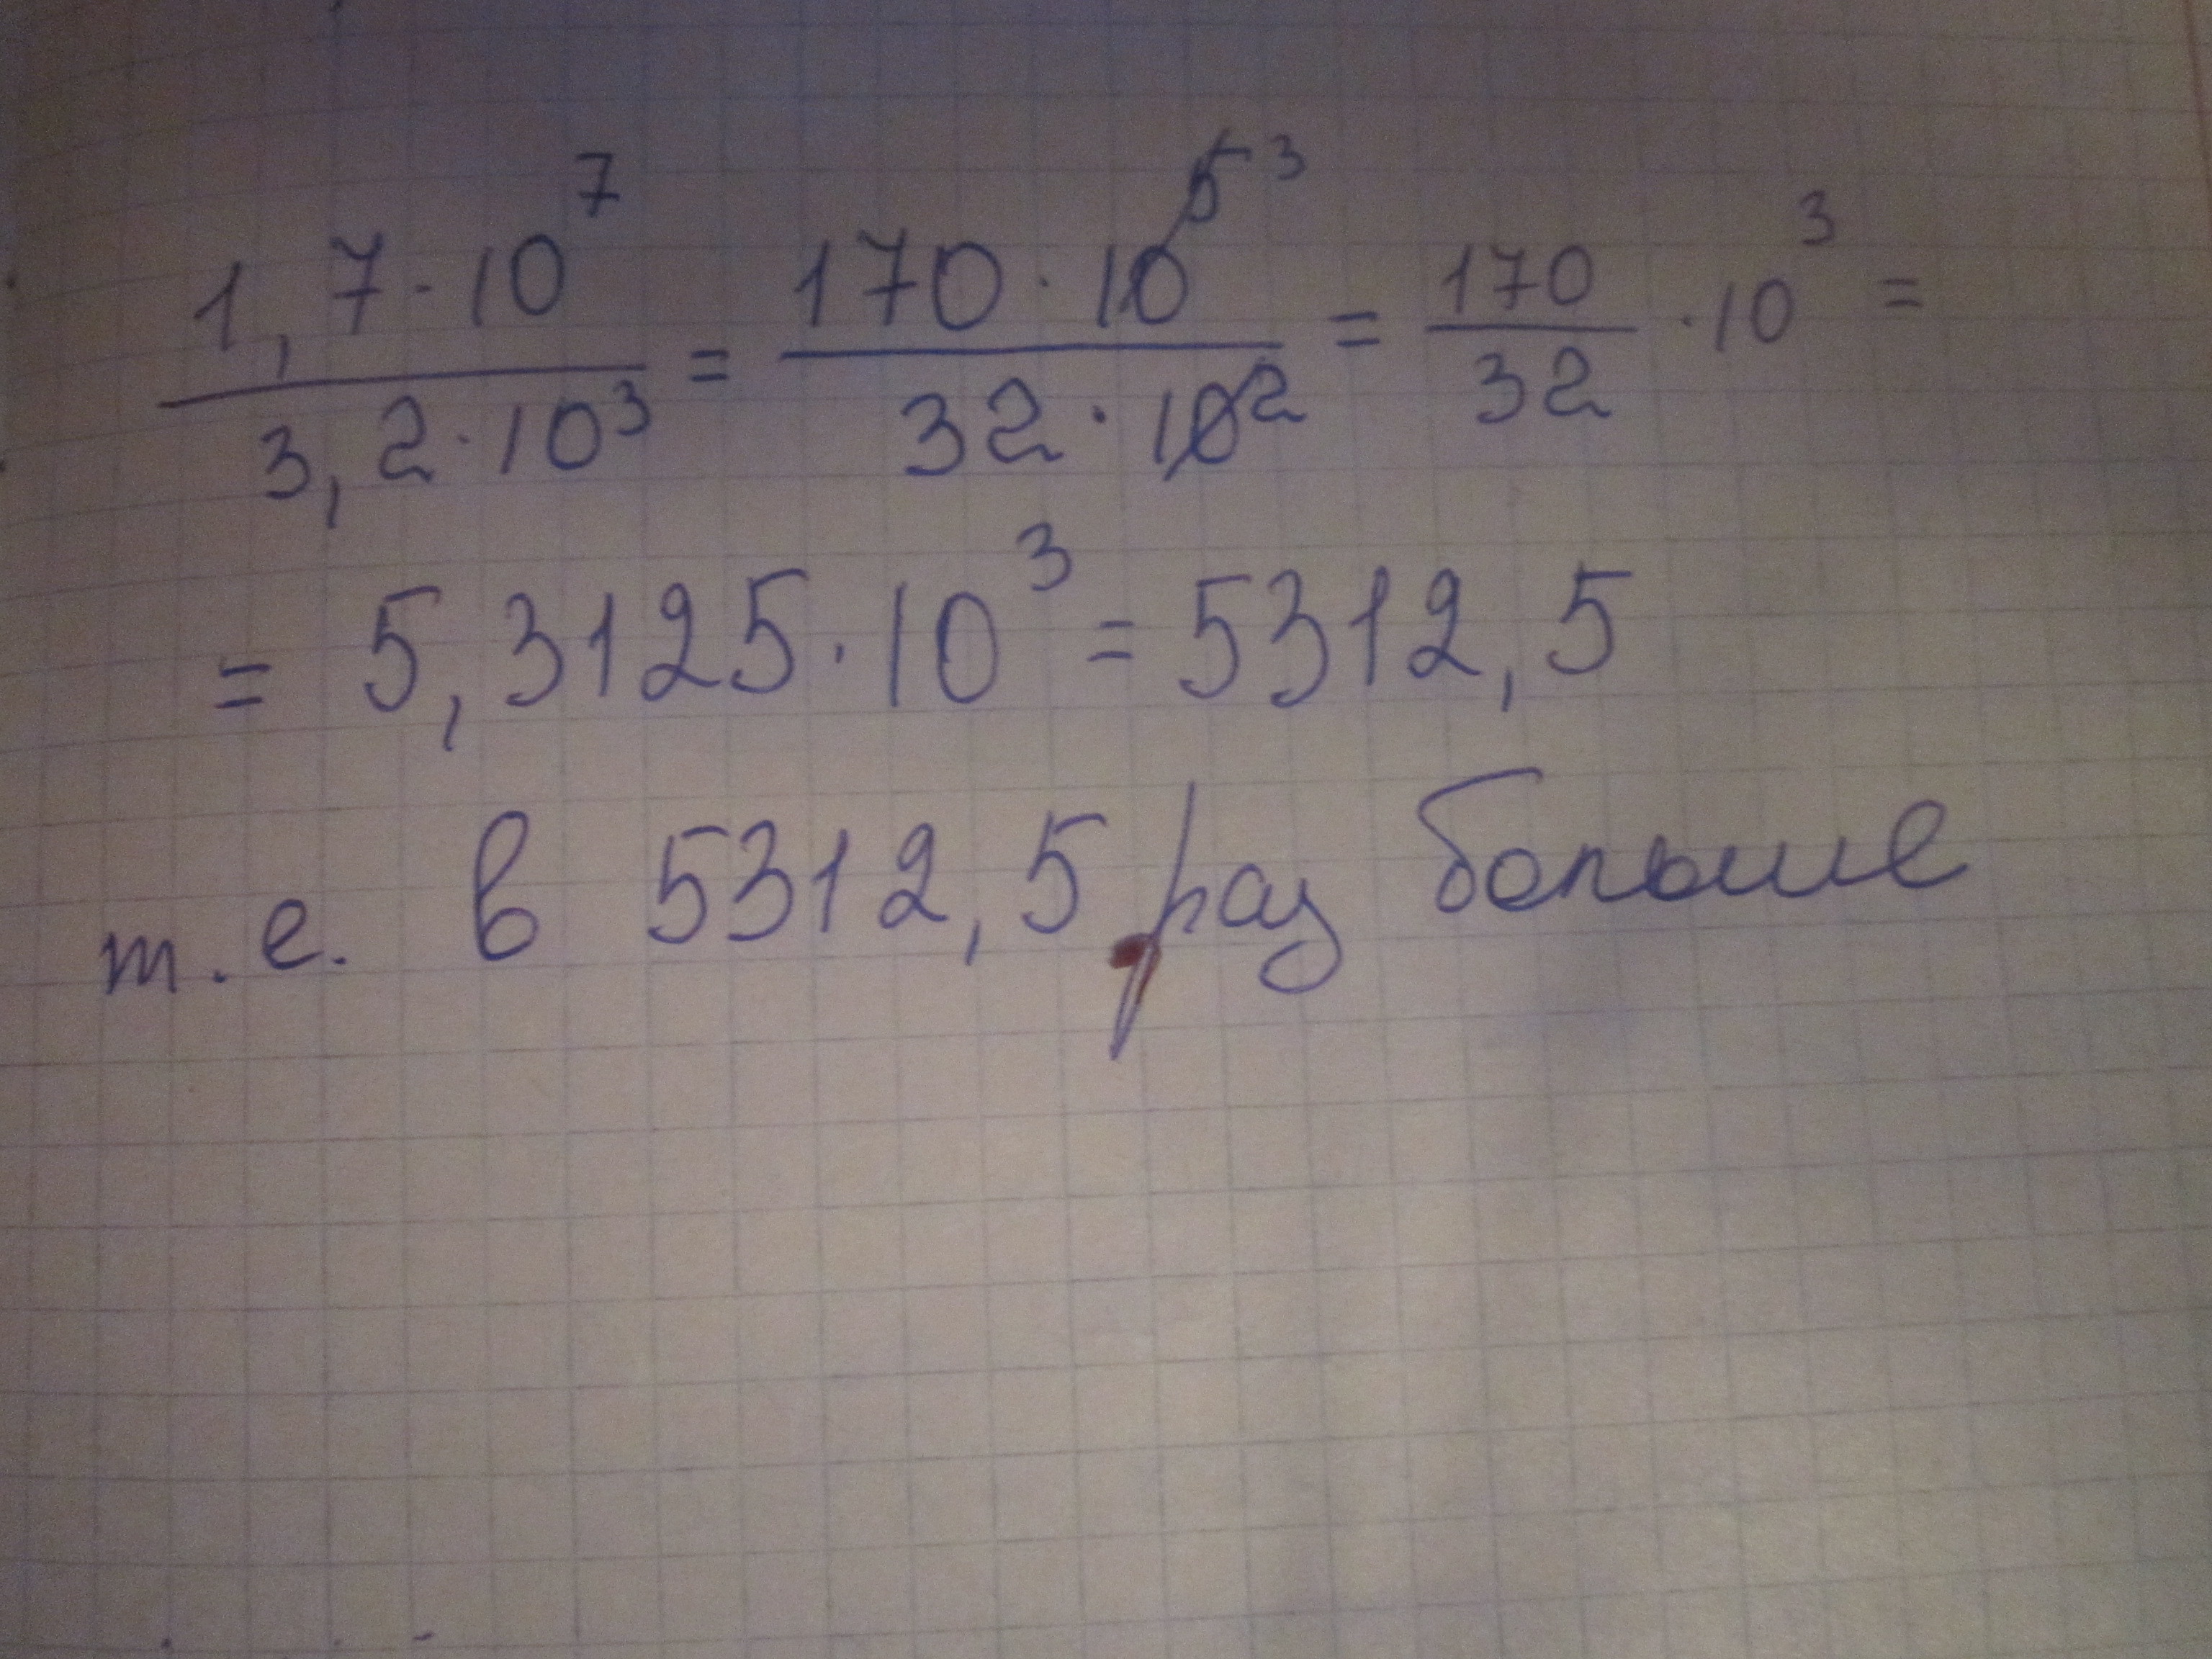 1,7·10⁷/3,2·10³ = 170·10⁵ ³/32·10² = 170/32 ·10³ =
= 5,3125·10³ = 5312,5
т.е. в 5312,5 раз больше